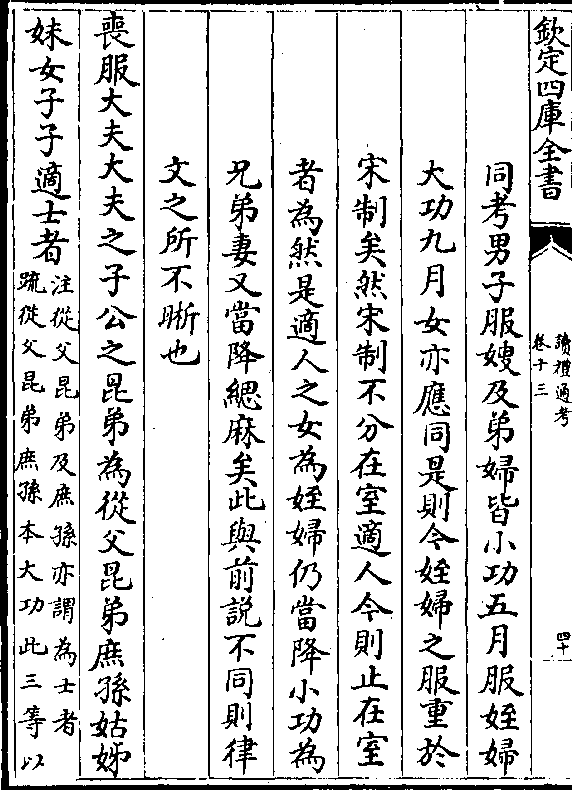 欽定四庫全書
讀禮通考
卷十三
四十
同考男子服嫂及弟婦皆小功五月服姪婦
大功九月女亦應同是則今姪婦之服重於
宋制矣然宋制不分在室適人今則止在室
者為然是適人之女為姪婦仍當降小功為
兄弟妻又當降緦麻矣此與前説不同則律
文之所不晰也
喪服大夫大夫之子公之昆弟為從父昆弟庶孫姑姊
妹女子子適士者
注從父昆弟及庶孫亦謂為士者
疏從父昆弟庶孫本大功此三等以